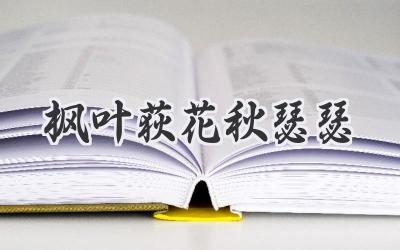 枫叶荻花秋瑟瑟